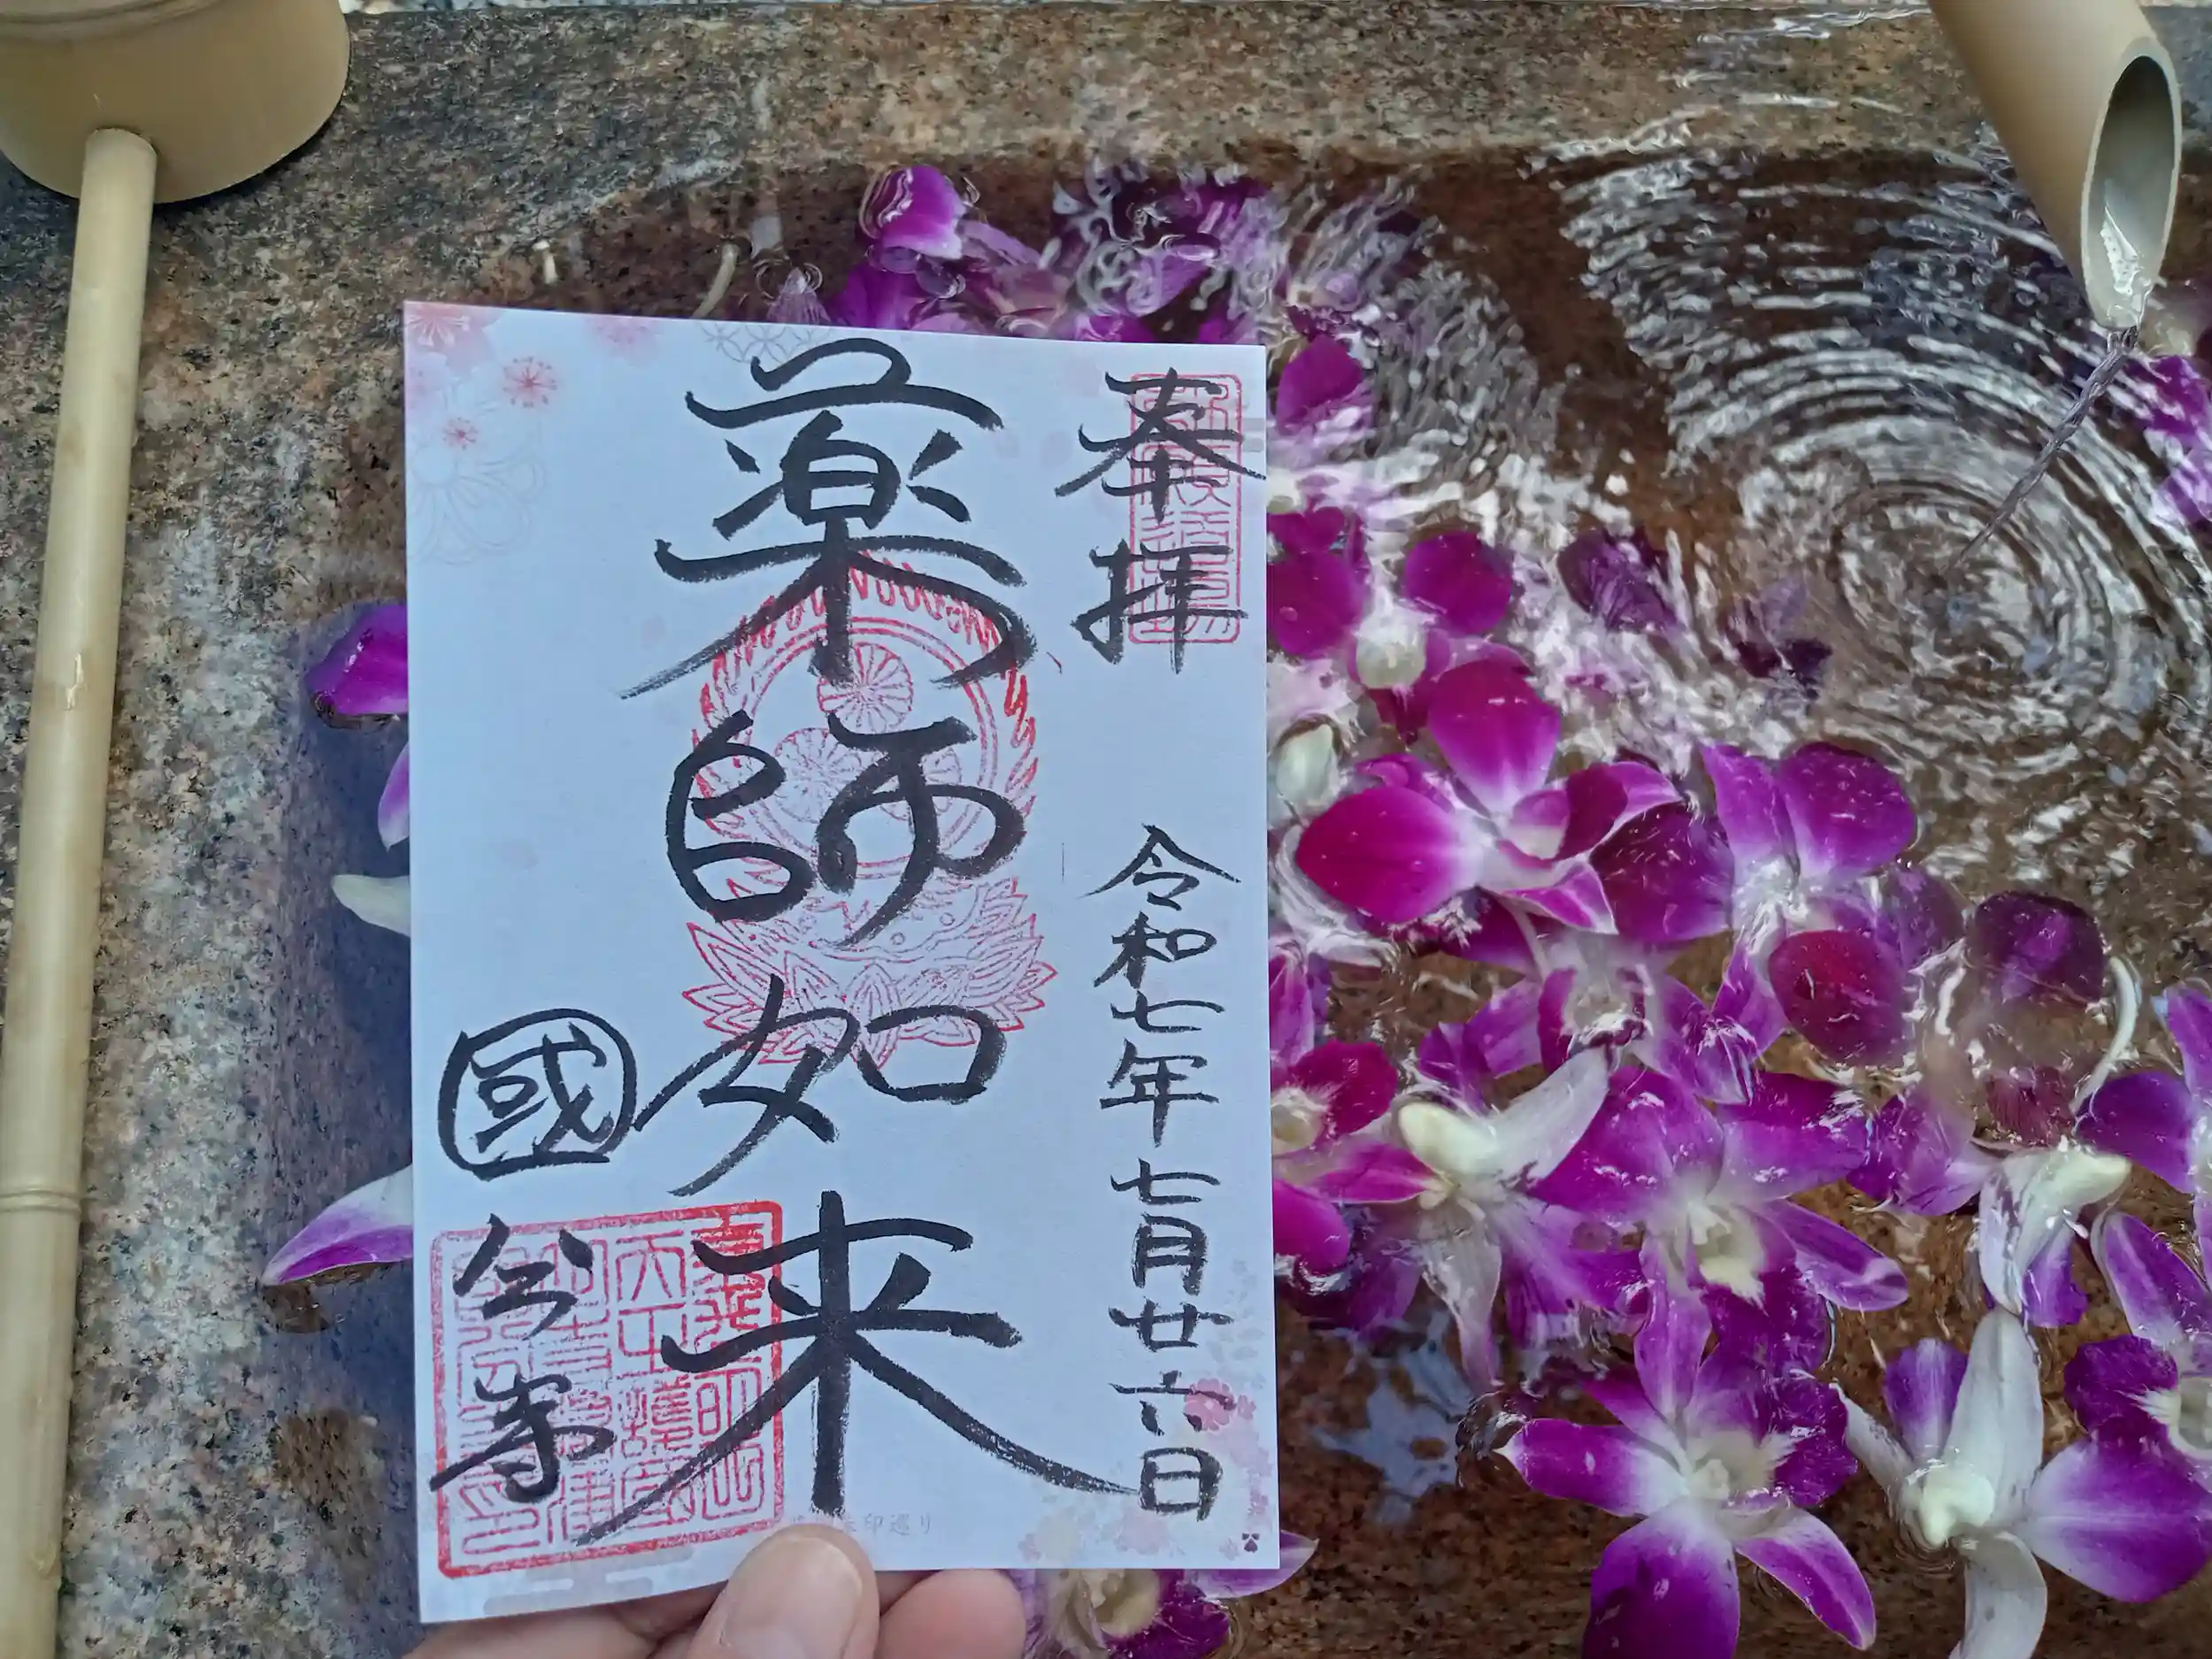 奉拝
令和七年七月廿六日
薬師如来
國分寺
印巡り